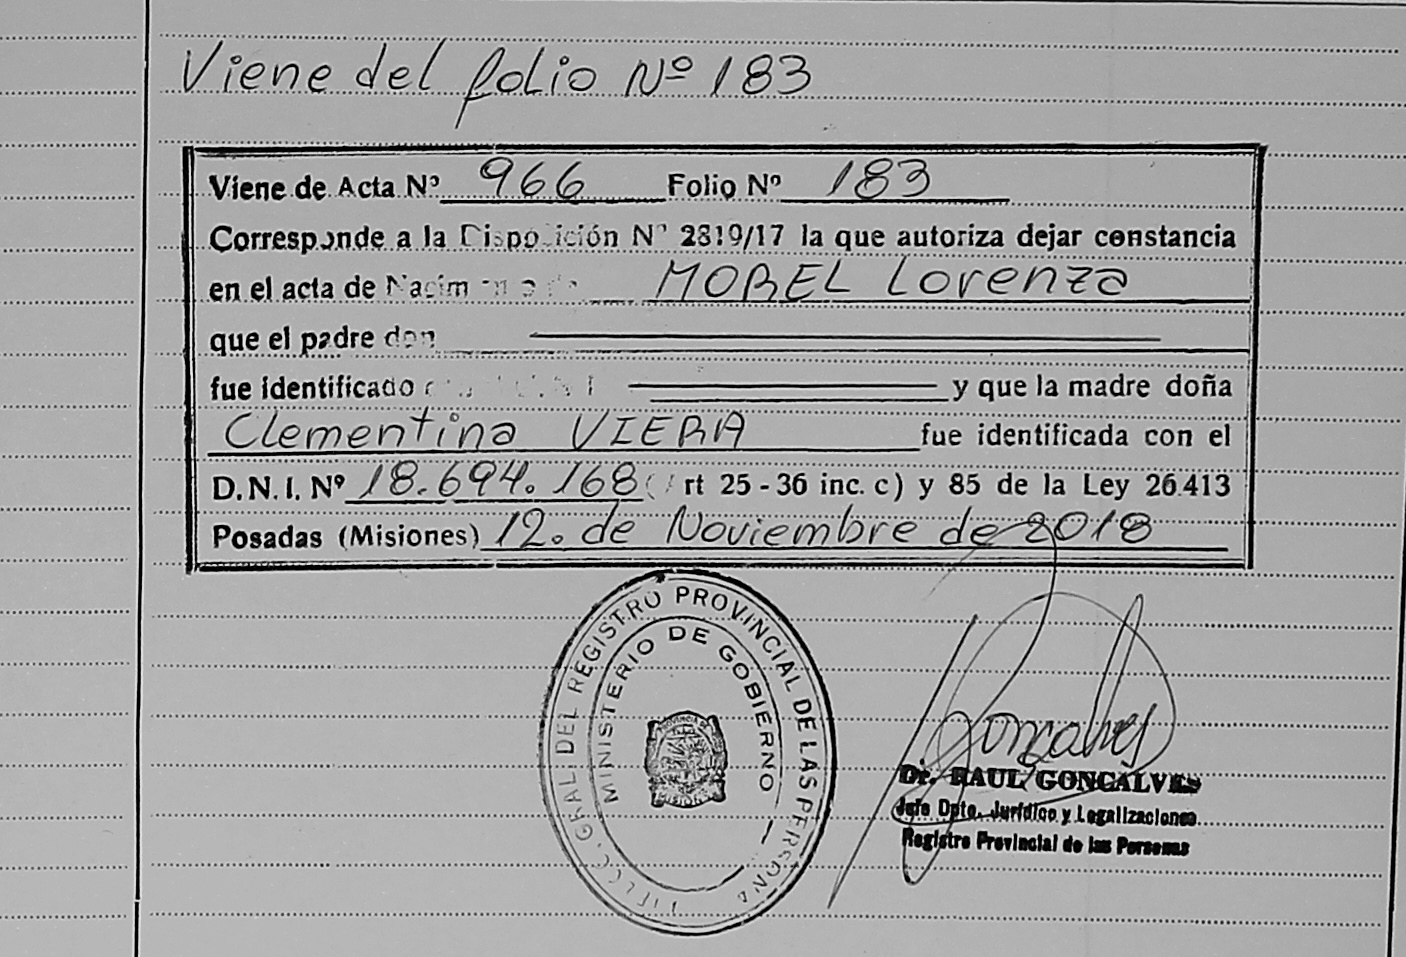 Viene del folio Nº 183
Viene de Acta Nº 966 Folio Nº 183
Corresponde a la Disposición Nº 2819/17 la que autoriza dejar constancia
en el acta de MOREL Lorenza
que el padre don
fue identificado y que la madre doña
Clementina VIERA fue identificada con el
D.N.I. Nº 18.694.168 rt 25-36 inc. c) y 85 de la Ley 26.413
Posadas (Misiones) 12. de Noviembre de 2018
GRAL. DEL REGISTRO PROVINCIAL DE LAS PERSONA
MINISTERIO DE GOBIERNO
Goncalves
Dr. RAUL GONCALVES
Jefe Dpto. Jurídico y Legalizaciones
Registro Provincial de las Personas